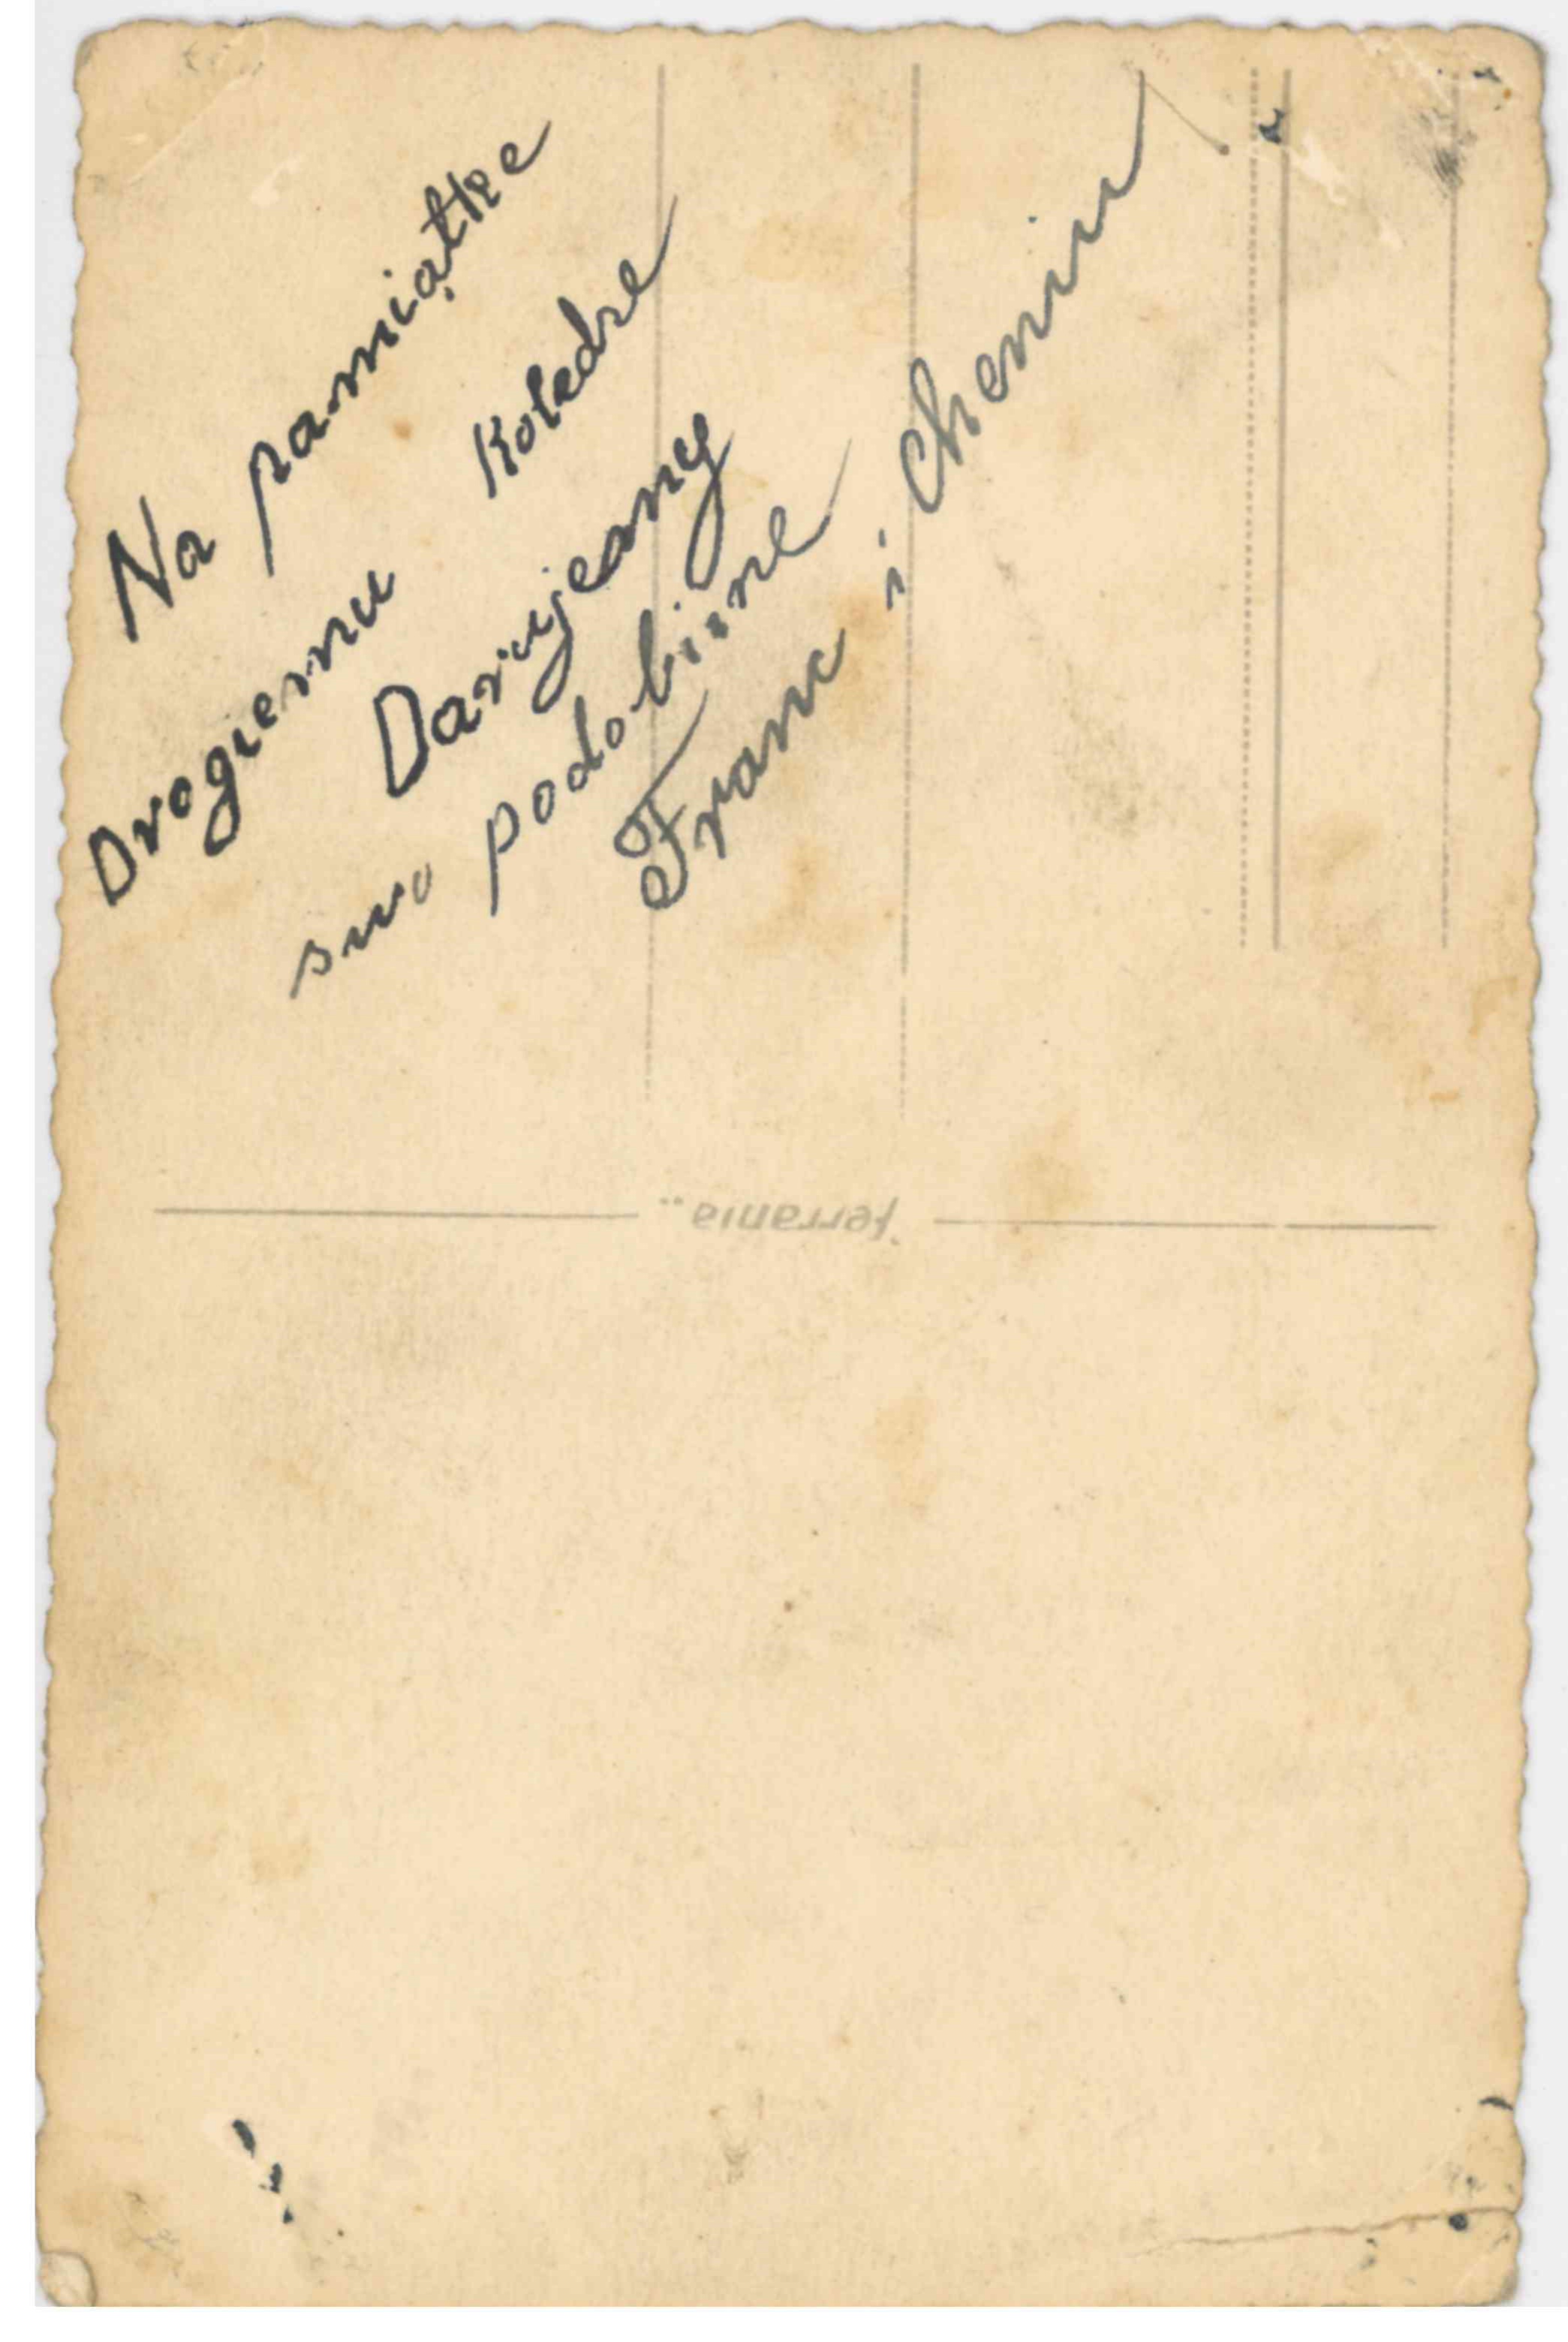 Na pamiątke
Drogiemu Koledze
Darujeany
swo podobizne
Franc i Chenin
"ferrania"